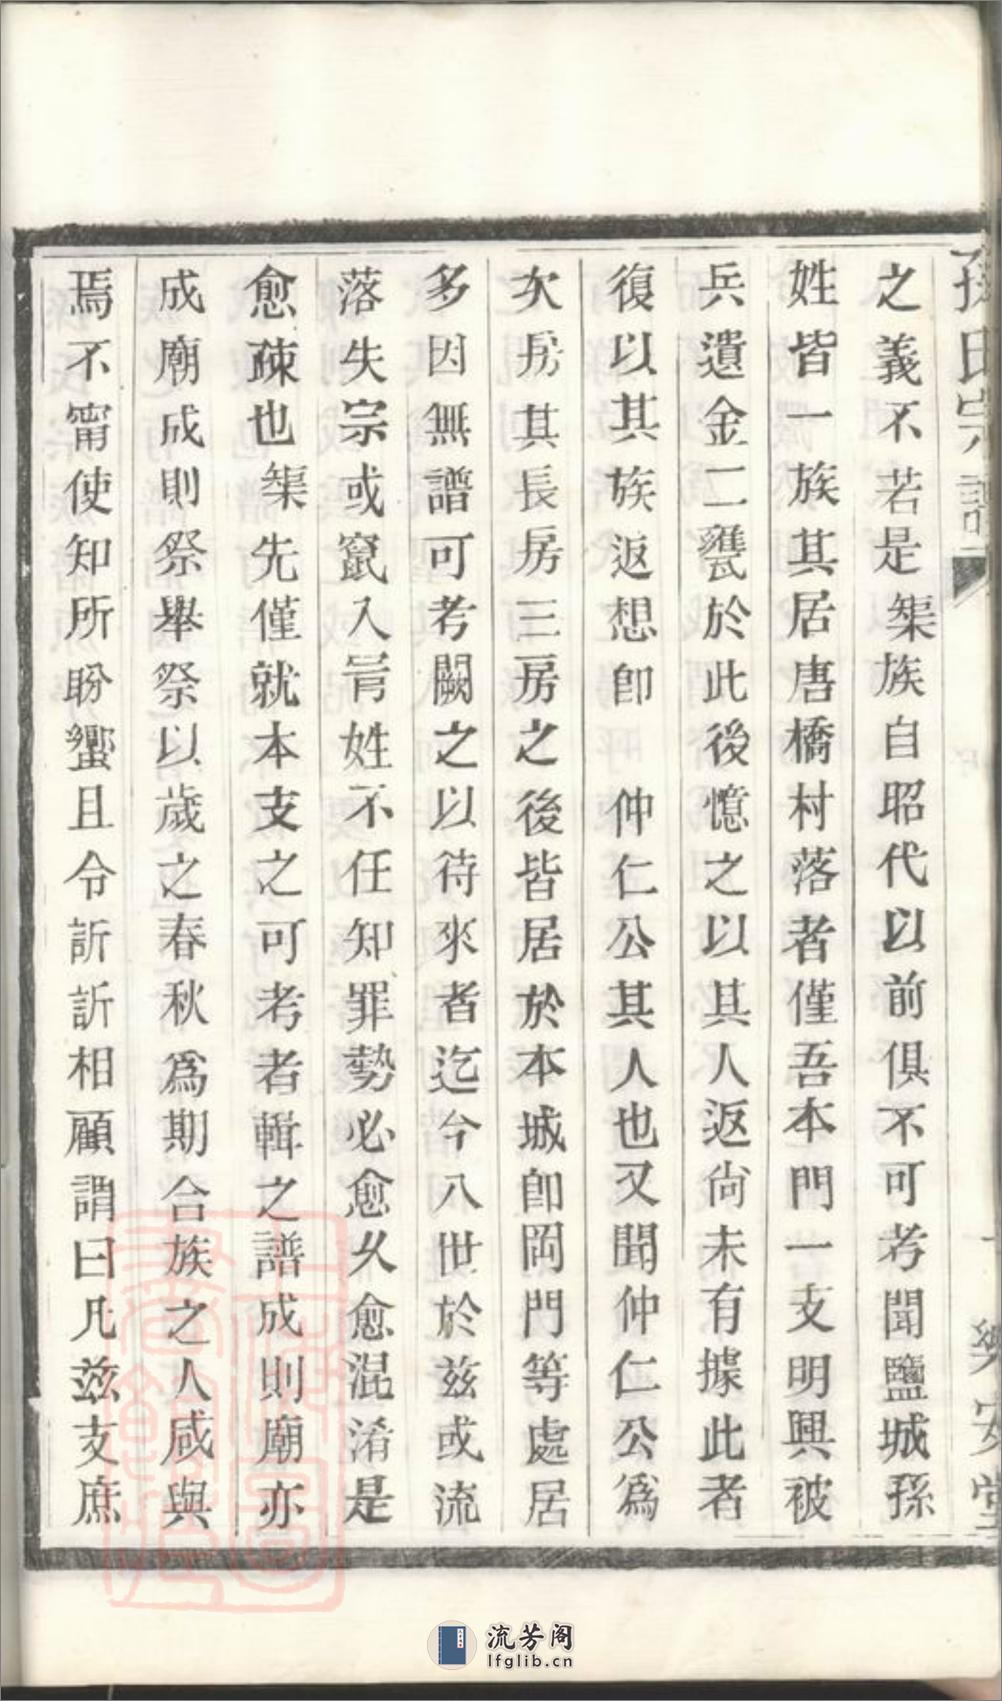 孫氏宗譜
樂安堂
之義不若是榘族自昭代以前俱不可考聞鹽城孫
姓皆一族其居唐橋村落者僅吾本門一支明興被
兵遺金二甕於此後憶之以其人返尙未有據此者
復以其族返想卽 仲仁公其人也又聞仲仁公爲
次房其長房三房之後皆居於本城卽岡門等處居
多因無譜可考闕之以待來者迄今八世於兹或流
落失宗或竄入胥姓不任知罪勢必愈久愈混淆是
愈疎也榘先僅就本支之可考者輯之譜成則廟亦
成廟成則祭舉祭以歲之春秋爲期合族之人咸與
焉不甯使知所盼蠁且令訢訢相顧謂曰凡兹支庶
流芳阁
lfglib.cn